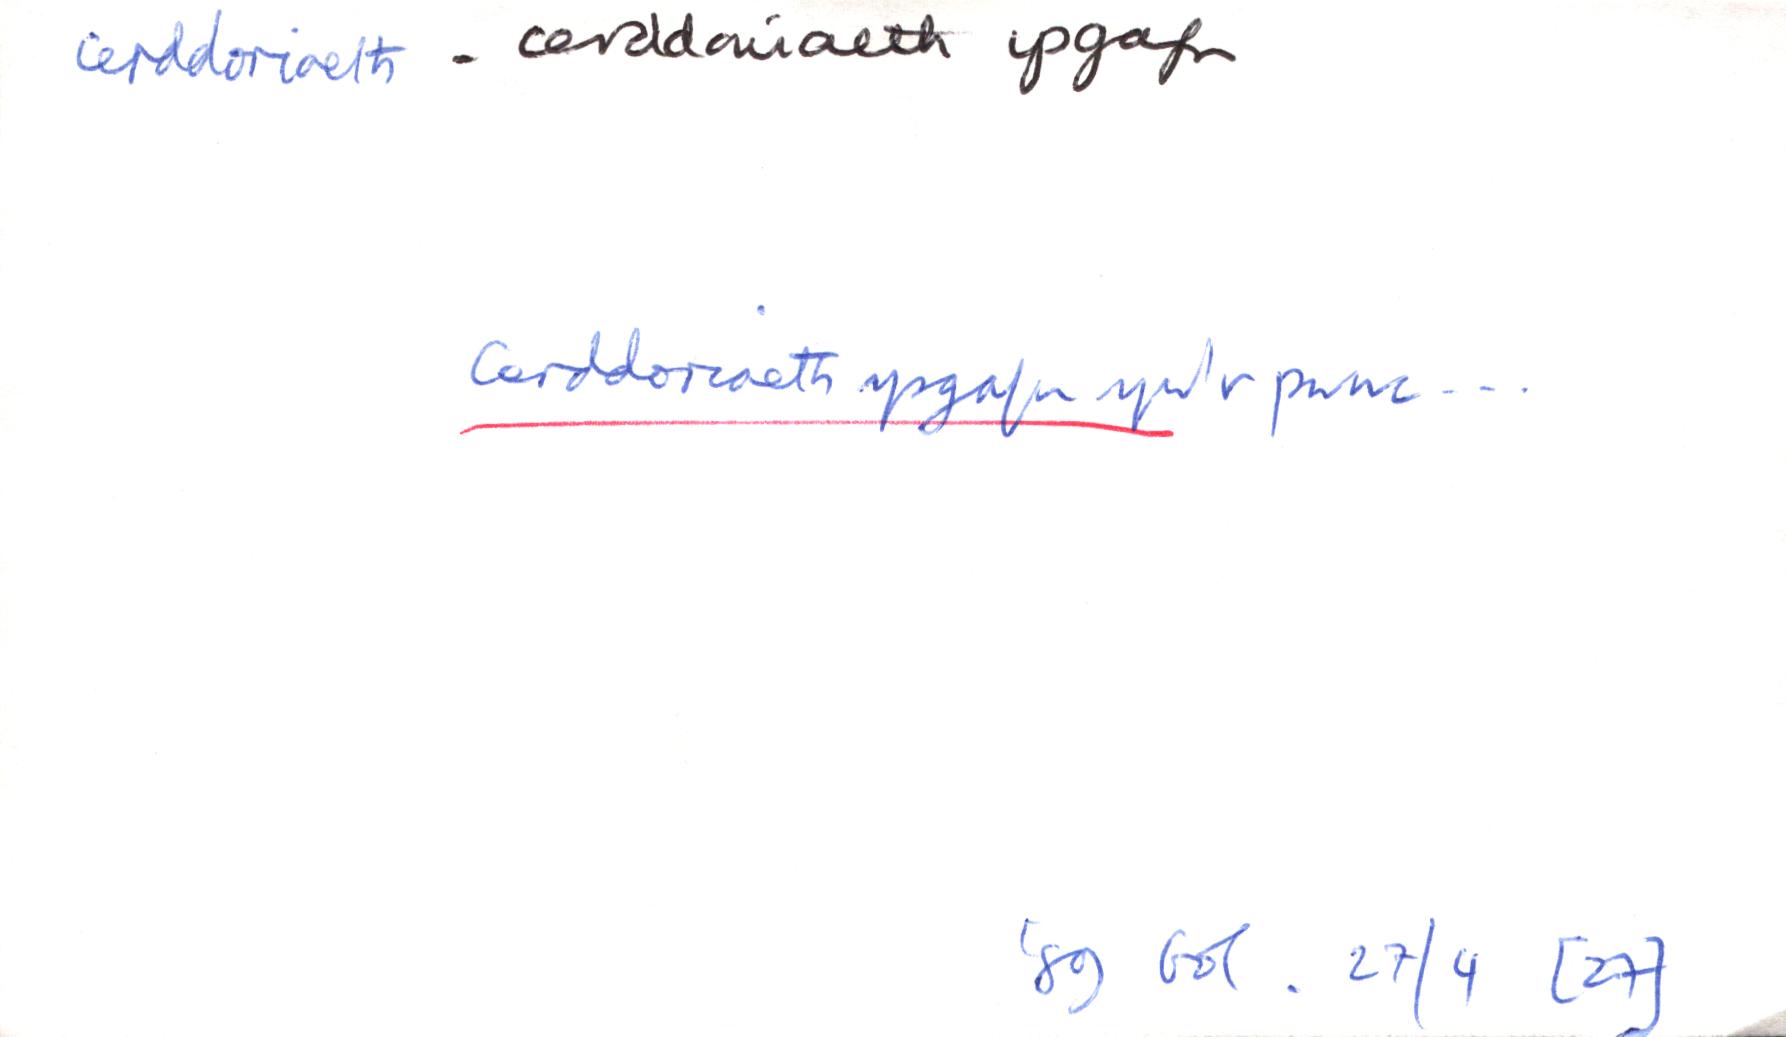 cerddoriaeth - cerddoriaeth ysgafn
Cerddoriaeth ysgafn yw'r pwnc ....
'89 Gol. 27/4 [27]